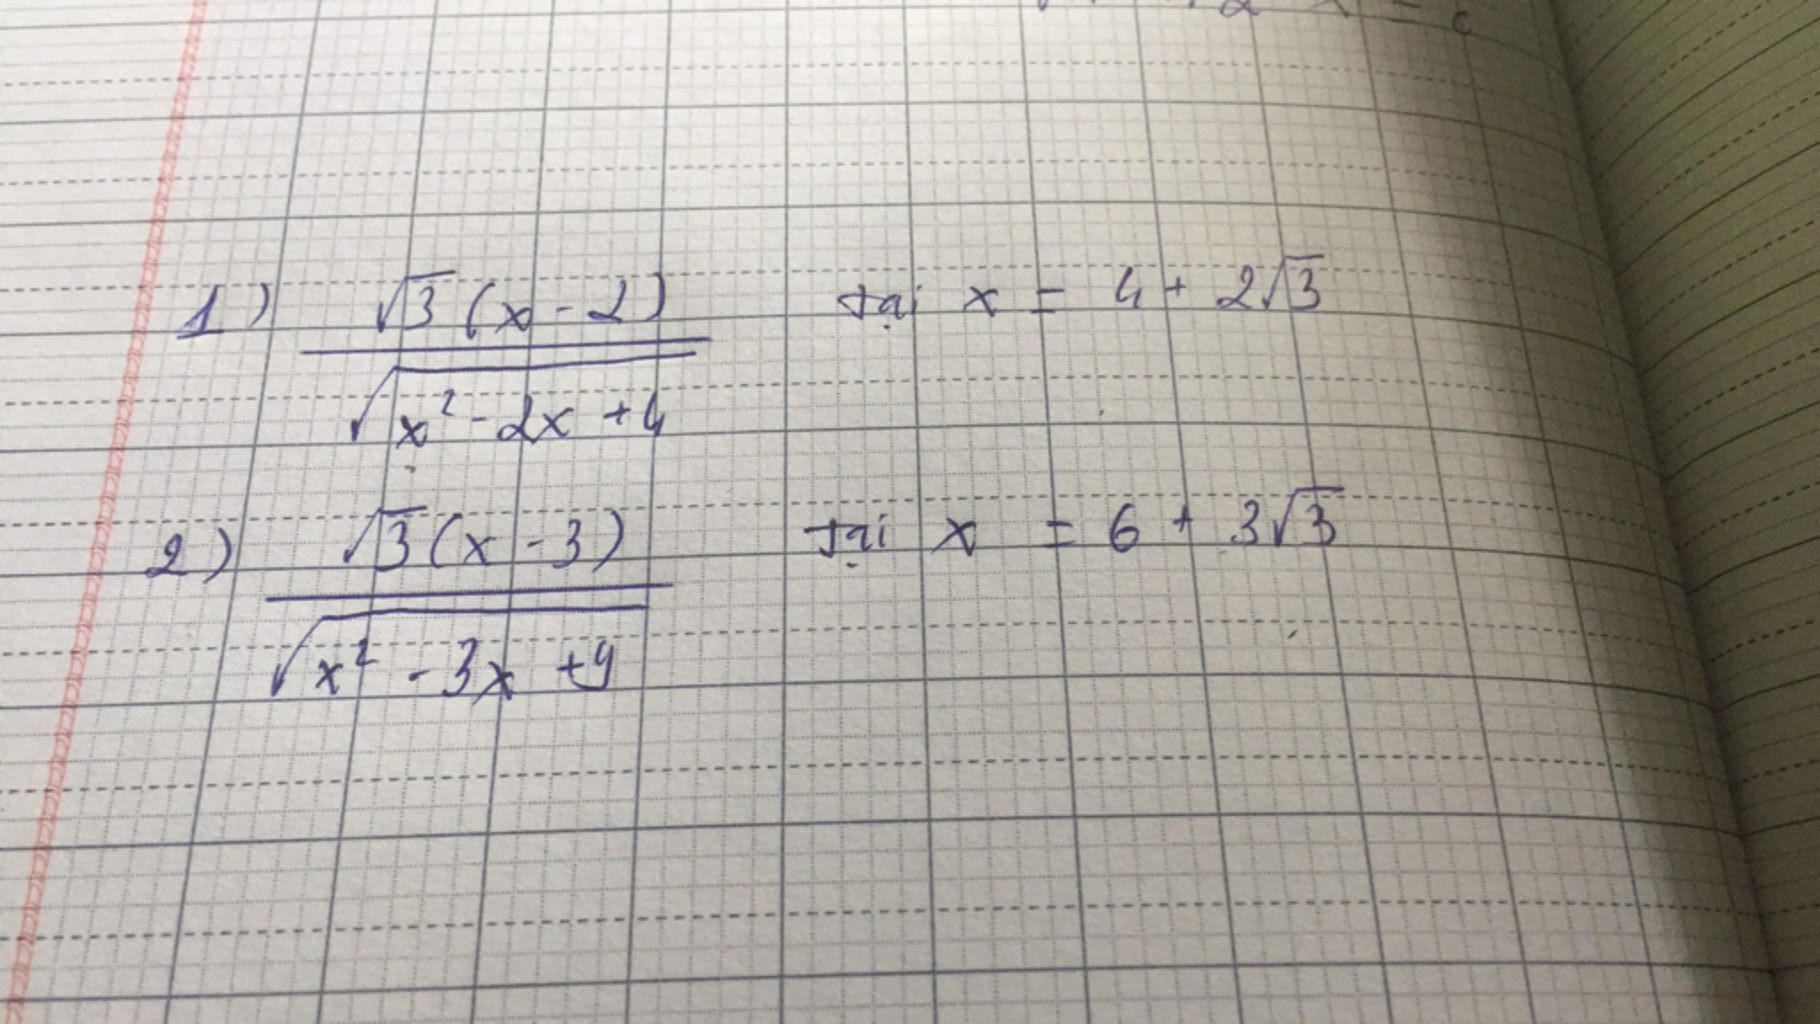 1) √3(x - 2) / √(x² - 2x + 4) tại x = 4 + 2√3
2) √3(x - 3) / √(x² - 3x + 9) tại x = 6 + 3√3